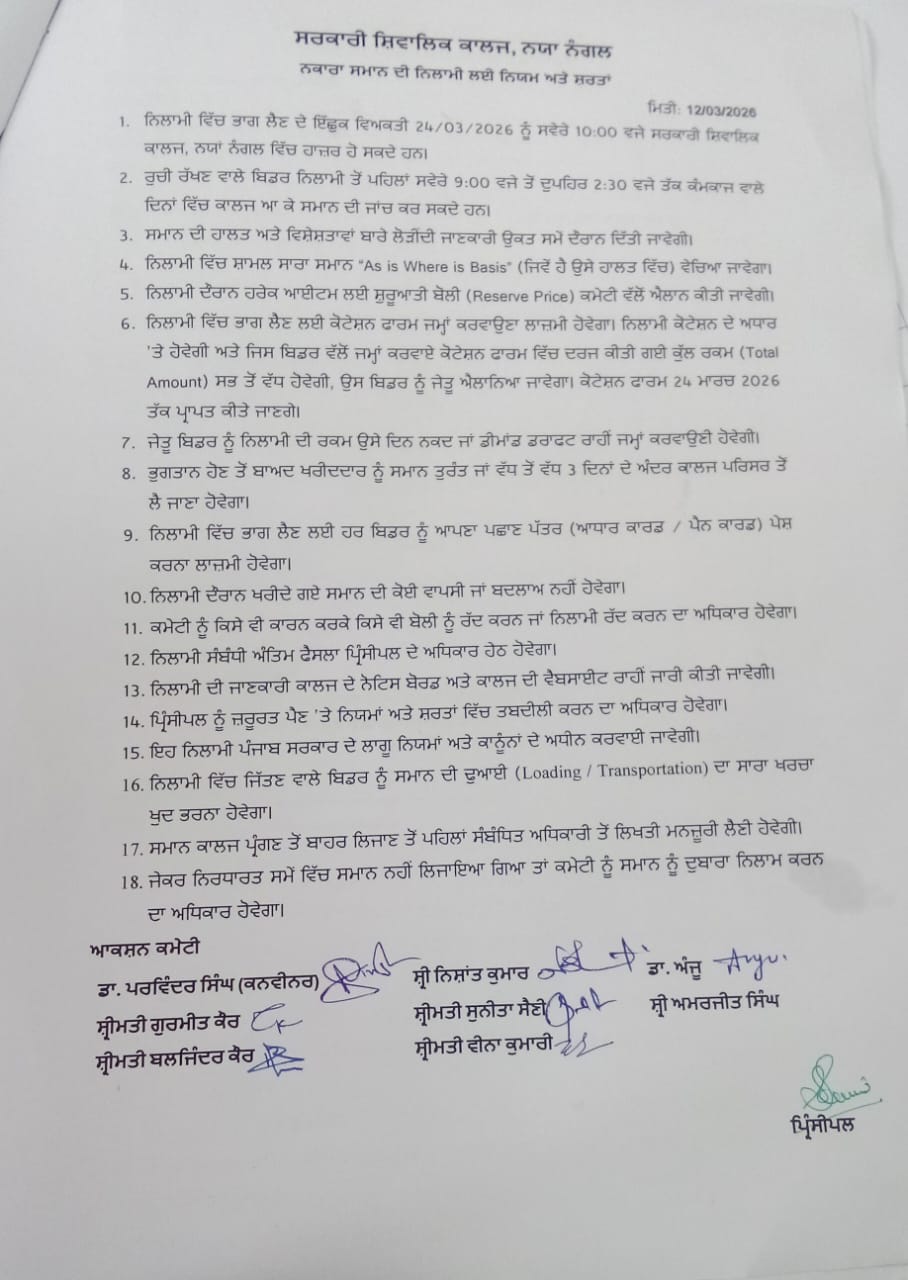 ਸਰਕਾਰੀ ਸ਼ਿਵਾਲਿਕ ਕਾਲਜ, ਨਯਾ ਨੰਗਲ
ਨਕਾਰਾ ਸਮਾਨ ਦੀ ਨਿਲਾਮੀ ਲਈ ਨਿਯਮ ਅਤੇ ਸ਼ਰਤਾਂ
ਮਿਤੀ: 12/03/2026
1. ਨਿਲਾਮੀ ਵਿੱਚ ਭਾਗ ਲੈਣ ਦੇ ਇੱਛੁਕ ਵਿਅਕਤੀ 24/03/2026 ਨੂੰ ਸਵੇਰੇ 10:00 ਵਜੇ ਸਰਕਾਰੀ ਸ਼ਿਵਾਲਿਕ
ਕਾਲਜ, ਨਯਾਂ ਨੰਗਲ ਵਿੱਚ ਹਾਜ਼ਰ ਹੋ ਸਕਦੇ ਹਨ।
2. ਰੁਚੀ ਰੱਖਣ ਵਾਲੇ ਬਿਡਰ ਨਿਲਾਮੀ ਤੋਂ ਪਹਿਲਾਂ ਸਵੇਰੇ 9:00 ਵਜੇ ਤੋਂ ਦੁਪਹਿਰ 2:30 ਵਜੇ ਤੱਕ ਕੰਮਕਾਜ ਵਾਲੇ
ਦਿਨਾਂ ਵਿੱਚ ਕਾਲਜ ਆ ਕੇ ਸਮਾਨ ਦੀ ਜਾਂਚ ਕਰ ਸਕਦੇ ਹਨ।
3. ਸਮਾਨ ਦੀ ਹਾਲਤ ਅਤੇ ਵਿਸ਼ੇਸ਼ਤਾਵਾਂ ਬਾਰੇ ਲੋੜੀਂਦੀ ਜਾਣਕਾਰੀ ਉਕਤ ਸਮੇਂ ਦੌਰਾਨ ਦਿੱਤੀ ਜਾਵੇਗੀ।
4. ਨਿਲਾਮੀ ਵਿੱਚ ਸ਼ਾਮਲ ਸਾਰਾ ਸਮਾਨ “As is Where is Basis” (ਜਿਵੇਂ ਹੈ ਉਸੇ ਹਾਲਤ ਵਿੱਚ) ਵੇਚਿਆ ਜਾਵੇਗਾ।
5. ਨਿਲਾਮੀ ਦੌਰਾਨ ਹਰੇਕ ਆਈਟਮ ਲਈ ਸ਼ੁਰੂਆਤੀ ਬੋਲੀ (Reserve Price) ਕਮੇਟੀ ਵੱਲੋਂ ਐਲਾਨ ਕੀਤੀ ਜਾਵੇਗੀ।
6. ਨਿਲਾਮੀ ਵਿੱਚ ਭਾਗ ਲੈਣ ਲਈ ਕੋਟੇਸ਼ਨ ਫਾਰਮ ਜਮ੍ਹਾਂ ਕਰਵਾਉਣਾ ਲਾਜ਼ਮੀ ਹੋਵੇਗਾ। ਨਿਲਾਮੀ ਕੋਟੇਸ਼ਨ ਦੇ ਅਧਾਰ
'ਤੇ ਹੋਵੇਗੀ ਅਤੇ ਜਿਸ ਬਿਡਰ ਵੱਲੋਂ ਜਮ੍ਹਾਂ ਕਰਵਾਏ ਕੋਟੇਸ਼ਨ ਫਾਰਮ ਵਿੱਚ ਦਰਜ ਕੀਤੀ ਗਈ ਕੁੱਲ ਰਕਮ (Total
Amount) ਸਭ ਤੋਂ ਵੱਧ ਹੋਵੇਗੀ, ਉਸ ਬਿਡਰ ਨੂੰ ਜੇਤੂ ਐਲਾਨਿਆ ਜਾਵੇਗਾ। ਕੋਟੇਸ਼ਨ ਫਾਰਮ 24 ਮਾਰਚ 2026
ਤੱਕ ਪ੍ਰਾਪਤ ਕੀਤੇ ਜਾਣਗੇ।
7. ਜੇਤੂ ਬਿਡਰ ਨੂੰ ਨਿਲਾਮੀ ਦੀ ਰਕਮ ਉਸੇ ਦਿਨ ਨਕਦ ਜਾਂ ਡੀਮਾਂਡ ਡਰਾਫਟ ਰਾਹੀਂ ਜਮ੍ਹਾਂ ਕਰਵਾਉਣੀ ਹੋਵੇਗੀ।
8. ਭੁਗਤਾਨ ਹੋਣ ਤੋਂ ਬਾਅਦ ਖਰੀਦਦਾਰ ਨੂੰ ਸਮਾਨ ਤੁਰੰਤ ਜਾਂ ਵੱਧ ਤੋਂ ਵੱਧ 3 ਦਿਨਾਂ ਦੇ ਅੰਦਰ ਕਾਲਜ ਪਰਿਸਰ ਤੋਂ
ਲੈ ਜਾਣਾ ਹੋਵੇਗਾ।
9. ਨਿਲਾਮੀ ਵਿੱਚ ਭਾਗ ਲੈਣ ਲਈ ਹਰ ਬਿਡਰ ਨੂੰ ਆਪਣਾ ਪਛਾਣ ਪੱਤਰ (ਆਧਾਰ ਕਾਰਡ / ਪੈਨ ਕਾਰਡ) ਪੇਸ਼
ਕਰਨਾ ਲਾਜ਼ਮੀ ਹੋਵੇਗਾ।
10. ਨਿਲਾਮੀ ਦੌਰਾਨ ਖਰੀਦੇ ਗਏ ਸਮਾਨ ਦੀ ਕੋਈ ਵਾਪਸੀ ਜਾਂ ਬਦਲਾਅ ਨਹੀਂ ਹੋਵੇਗਾ।
11. ਕਮੇਟੀ ਨੂੰ ਕਿਸੇ ਵੀ ਕਾਰਨ ਕਰਕੇ ਕਿਸੇ ਵੀ ਬੋਲੀ ਨੂੰ ਰੱਦ ਕਰਨ ਜਾਂ ਨਿਲਾਮੀ ਰੱਦ ਕਰਨ ਦਾ ਅਧਿਕਾਰ ਹੋਵੇਗਾ।
12. ਨਿਲਾਮੀ ਸੰਬੰਧੀ ਅੰਤਿਮ ਫੈਸਲਾ ਪ੍ਰਿੰਸੀਪਲ ਦੇ ਅਧਿਕਾਰ ਹੇਠ ਹੋਵੇਗਾ।
13. ਨਿਲਾਮੀ ਦੀ ਜਾਣਕਾਰੀ ਕਾਲਜ ਦੇ ਨੋਟਿਸ ਬੋਰਡ ਅਤੇ ਕਾਲਜ ਦੀ ਵੈਬਸਾਈਟ ਰਾਹੀਂ ਜਾਰੀ ਕੀਤੀ ਜਾਵੇਗੀ।
14. ਪ੍ਰਿੰਸੀਪਲ ਨੂੰ ਜ਼ਰੂਰਤ ਪੈਣ 'ਤੇ ਨਿਯਮਾਂ ਅਤੇ ਸ਼ਰਤਾਂ ਵਿੱਚ ਤਬਦੀਲੀ ਕਰਨ ਦਾ ਅਧਿਕਾਰ ਹੋਵੇਗਾ।
15. ਇਹ ਨਿਲਾਮੀ ਪੰਜਾਬ ਸਰਕਾਰ ਦੇ ਲਾਗੂ ਨਿਯਮਾਂ ਅਤੇ ਕਾਨੂੰਨਾਂ ਦੇ ਅਧੀਨ ਕਰਵਾਈ ਜਾਵੇਗੀ।
16. ਨਿਲਾਮੀ ਵਿੱਚ ਜਿੱਤਣ ਵਾਲੇ ਬਿਡਰ ਨੂੰ ਸਮਾਨ ਦੀ ਢੁਆਈ (Loading / Transportation) ਦਾ ਸਾਰਾ ਖਰਚਾ
ਖੁਦ ਭਰਨਾ ਹੋਵੇਗਾ।
17. ਸਮਾਨ ਕਾਲਜ ਪ੍ਰੰਗਣ ਤੋਂ ਬਾਹਰ ਲਿਜਾਣ ਤੋਂ ਪਹਿਲਾਂ ਸੰਬੰਧਿਤ ਅਧਿਕਾਰੀ ਤੋਂ ਲਿਖਤੀ ਮਨਜ਼ੂਰੀ ਲੈਣੀ ਹੋਵੇਗੀ।
18. ਜੇਕਰ ਨਿਰਧਾਰਤ ਸਮੇਂ ਵਿੱਚ ਸਮਾਨ ਨਹੀਂ ਲਿਜਾਇਆ ਗਿਆ ਤਾਂ ਕਮੇਟੀ ਨੂੰ ਸਮਾਨ ਨੂੰ ਦੁਬਾਰਾ ਨਿਲਾਮ ਕਰਨ
ਦਾ ਅਧਿਕਾਰ ਹੋਵੇਗਾ।
ਆਕਸ਼ਨ ਕਮੇਟੀ
ਡਾ. ਪਰਵਿੰਦਰ ਸਿੰਘ (ਕਨਵੀਨਰ) ਸ਼੍ਰੀ ਨਿਸ਼ਾਂਤ ਕੁਮਾਰ ਡਾ. ਅੰਜੂ
ਸ਼੍ਰੀਮਤੀ ਗੁਰਮੀਤ ਕੌਰ ਸ਼੍ਰੀਮਤੀ ਸੁਨੀਤਾ ਸੈਣੀ ਸ਼੍ਰੀ ਅਮਰਜੀਤ ਸਿੰਘ
ਸ਼੍ਰੀਮਤੀ ਬਲਜਿੰਦਰ ਕੌਰ ਸ਼੍ਰੀਮਤੀ ਵੀਨਾ ਕੁਮਾਰੀ
ਪ੍ਰਿੰਸੀਪਲ